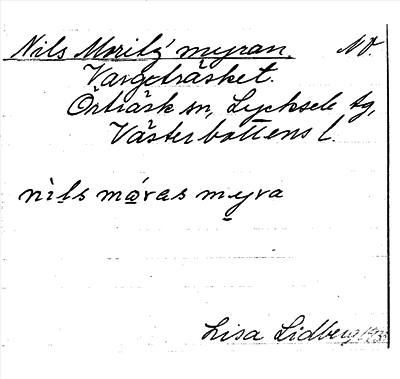 Nils Moritz myran. NV.
Vargträsket.
Örträsk sn, Lycksele tg,
Västerbottens l.
nils måras myra
Lisa Lidberg